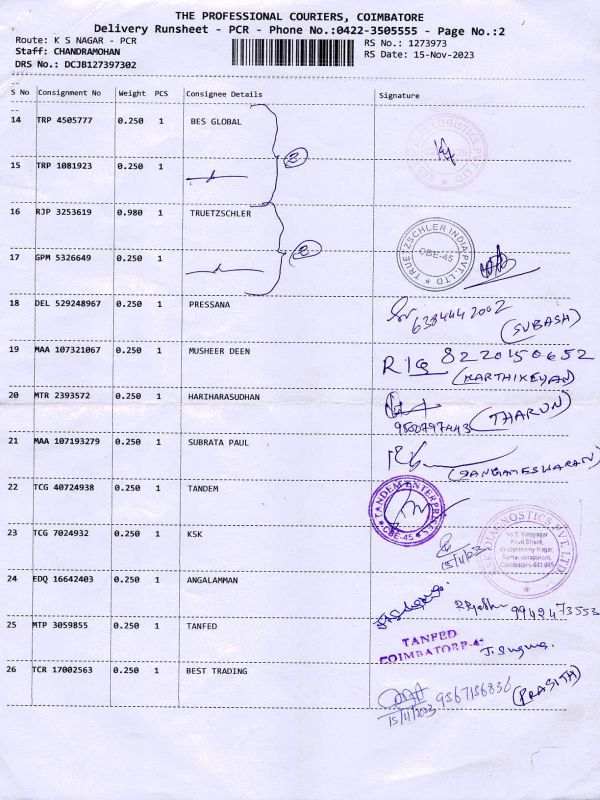 THE PROFESSIONAL COURIERS, COIMBATORE
Delivery Runsheet - PCR - Phone No.:0422-3505555 - Page No.:2
Route: K S NAGAR - PCR
RS No.: 1273973
Staff: CHANDRAMOHAN
RS Date: 15-Nov-2023
DRS No.: DCJB127397302
S No Consignment No Weight PCS Consignee Details Signature
14 TRP 4505777 0.250 1 BES GLOBAL
15 TRP 1081923 0.250 1
2
16 RJP 3253619 0.980 1 TRUETZSCHLER
TRUETZSCHLER INDIA PVT. LTD
CBE-45
17 GPM 5326649 0.250 1
2
18 DEL 529248967 0.250 1 PRESSANA
(SUBASH)
19 MAA 107321067 0.250 1 MUSHEER DEEN
8220150652
(KARTHIKEYAN)
20 MTR 2393572 0.250 1 HARIHARASUDHAN
(THARUN)
21 MAA 107193279 0.250 1 SUBRATA PAUL
(SANGAMESWARAN)
22 TCG 40724938 0.250 1 TANDEM
TANDEM ENTERPRISES
CBE-45
23 TCG 7024932 0.250 1 KSK
15/11/23
DIAGNOSTICS PVT. LTD
Krishnasamy Nagar,
Ramanathapuram,
Coimbatore-641 045
24 EDQ 16642403 0.250 1 ANGALAMMAN
9942473553
25 MTP 3059855 0.250 1 TANFED
TANFED
COIMBATORE-45
26 TCR 17002563 0.250 1 BEST TRADING
9567156836
(PRASITH)
15/11/2023